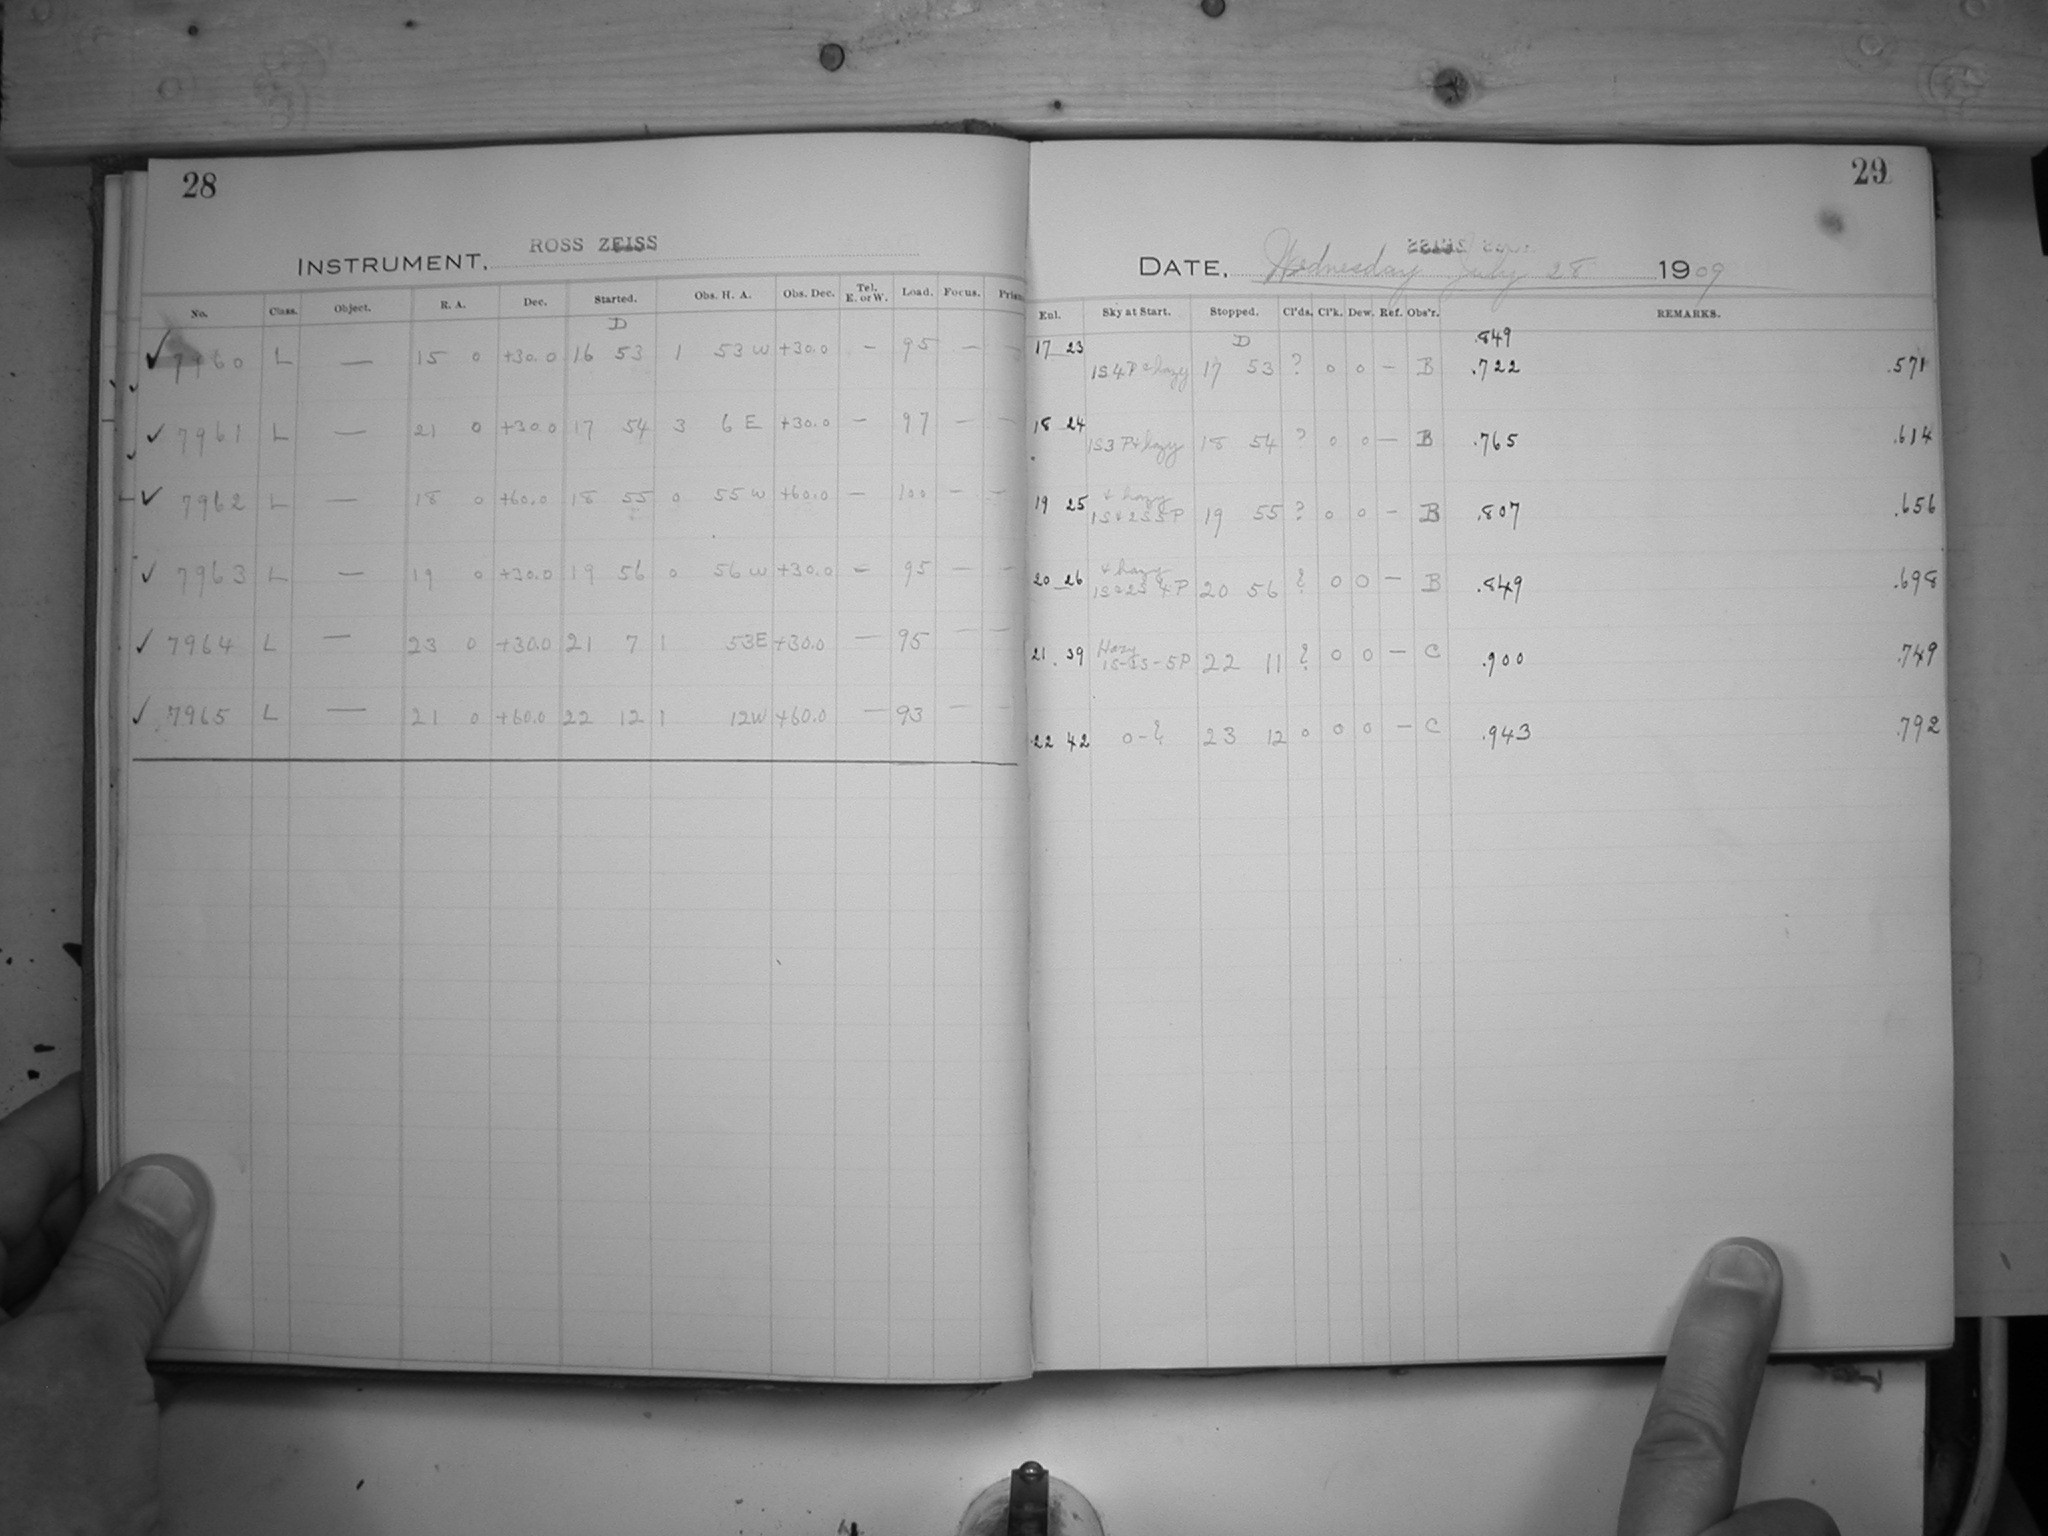 28
INSTRUMENT. ROSS ZEISS
No. Class. Object. R. A. Dec. Started. Obs. H. A. Obs. Dec. Tel. E. or W. Load. Focus.
D
7960 L — 15 0 +30.0 16 53 1 53 W +30.0 — 95 — —
7961 L — 21 0 +30.0 17 54 3 6 E +30.0 — 97 — —
7962 L — 18 0 +60.0 18 55 0 55 W +60.0 — 100 — —
7963 L — 19 0 +30.0 19 56 0 56 W +30.0 — 95 — —
7964 L — 23 0 +30.0 21 7 1 53 E +30.0 — 95 — —
7965 L — 21 0 +60.0 22 12 1 12 W +60.0 — 93 — —
29
DATE, Wednesday July 28 1909
Eul. Sky at Start. Stopped. Cl'ds. Cl'k. Dew. Ref. Obs'r. REMARKS.
D .849
17 23 1S4P & hazy 17 53 ? 0 0 — B .722 .571
18 24 1S3P & hazy 18 54 ? 0 0 — B .765 .614
& hazy
19 25 1S & 2S5P 19 55 ? 0 0 — B .807 .656
& hazy
20 26 1S & 2S 4P 20 56 ? 0 0 — B .849 .698
Hazy
21 39 1S-2S-5P 22 11 ? 0 0 — C .900 .749
22 42 0-? 23 12 0 0 0 — C .943 .792